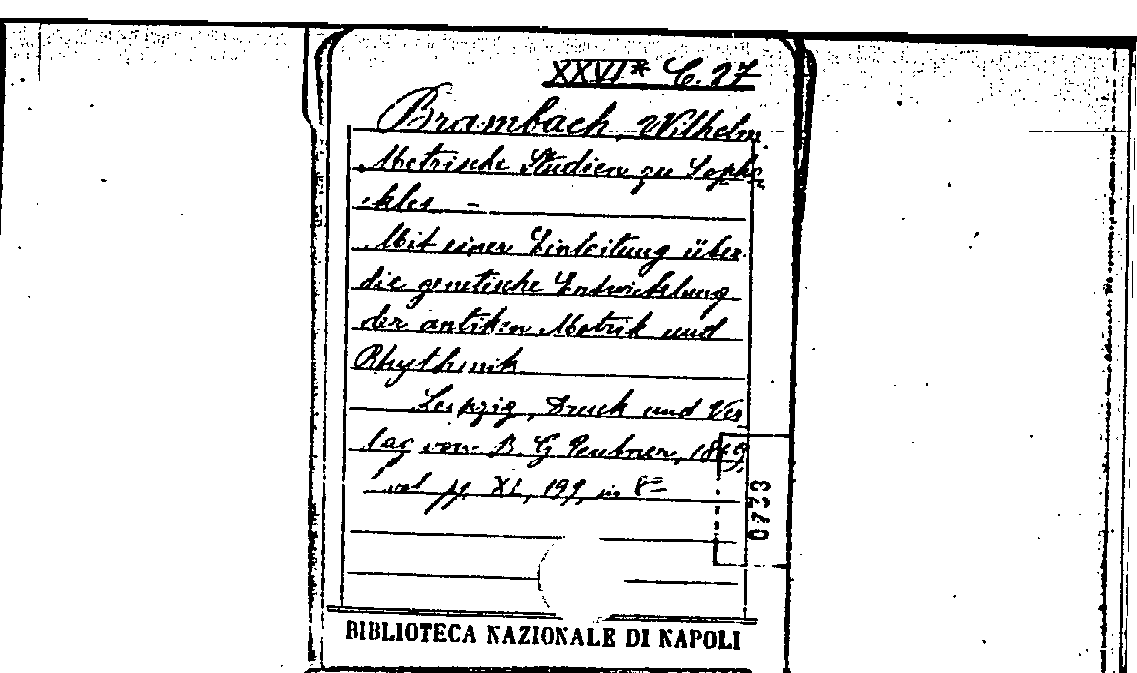 XXVI* C. 27
Brambach, Wilhelm.
Metrische Studien zu Sopho
kles –
Mit einer Einleitung über
die genetische Entwickelung
der antiken Metrik und
Rhythmik
Leipzig, Druck und Ver
lag von B. G Teubner, 1869,
vol pp. XL, 199, in 8º
0773
BIBLIOTECA NAZIONALE DI NAPOLI